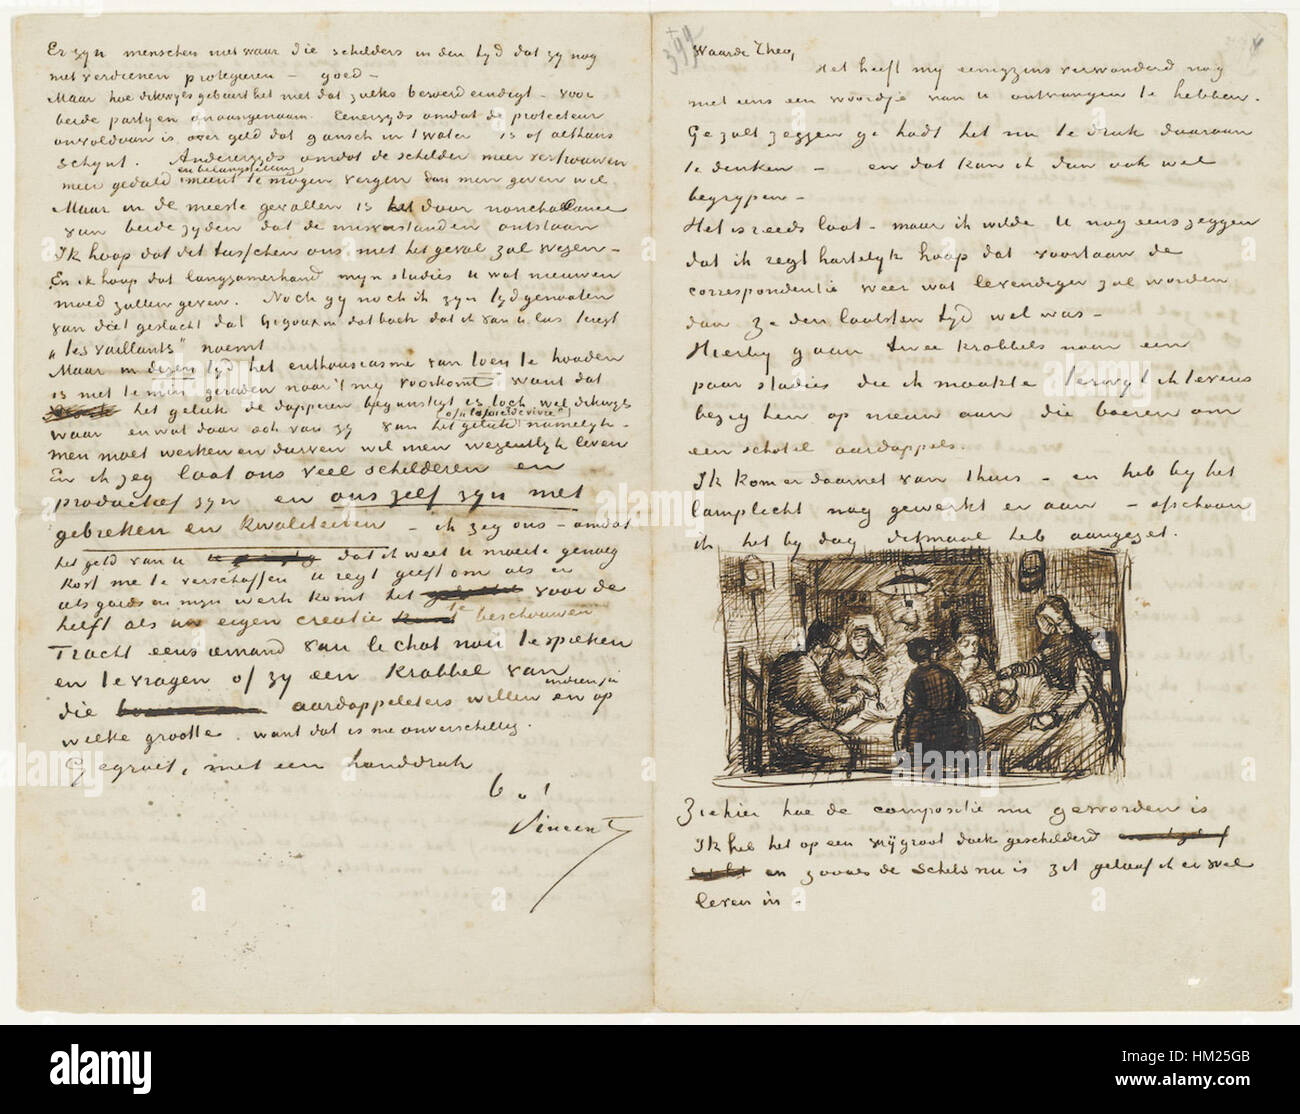 Er zijn menschen niet waar die schilders in den tyd dat zy nog
niet verdienen protegeeren – goed –
Maar hoe dikwyls gebeurt het niet dat zulks beroerd eindigt – voor
beide partyen onaangenaam. Eenerzyds omdat de protecteur
onvoldaan is over geld dat gansch in 't water is of althans
schynt. Anderzyds omdat de schilder meer vertrouwen
meer geduld en belangstelling meent te mogen vergen dan men geven wil
Maar in de meeste gevallen is het door nonchalance
van beide zyden dat de misverstanden ontstaan
Ik hoop dat dit tusschen ons niet het geval zal wezen –
En ik hoop dat langzamerhand myn studies u wat nieuwen
moed zullen geven. Noch gy noch ik zyn tydgenooten
van dat geslacht dat Gigoux in dat boek dat ik van u las teregt
„les vaillants" noemt
Maar in dezen tyd het enthousiasme van toen te houden
is niet te min geraden naar 't my voorkomt want dat
het geluk de dapperen begunstigt is toch wel dikwyls
waar en wat daar ook van zy van het geluk of „la joie de vivre"! namelyk –
men moet werken en durven wil men wezentlyk leven
En ik zeg laat ons veel schilderen en
productief zyn en ons zelf zyn met
gebreken en kwaliteiten – ik zeg ons – omdat
het geld van u dat ik weet u moeite genoeg
kost me te verschaffen u regt geeft om als er
iets goeds in myn werk komt het voor de
helft als uw eigen creatie te beschouwen
Tracht eens iemand van le chat noir te spreken
en te vragen of zy een krabbel van
die aardappeleters willen en indien ja op
welke grootte. want dat is me onverschillig.
Gegroet, met een handdruk
t. à t.
Vincent
Waarde Theo,
Het heeft my eenigzins verwonderd nog
niet eens een woordje van u ontvangen te hebben.
Ge zult zeggen ge hadt het nu te druk daaraan
te denken – en dat kan ik dan ook wel
begrypen –
Het is reeds laat – maar ik wilde u nog eens zeggen
dat ik regt hartelyk hoop dat voortaan de
correspondentie weer wat levendiger zal worden
dan ze den laatsten tyd wel was –
Hierby gaan twee krabbels naar een
paar studies die ik maakte terwyl ik tevens
bezig ben op nieuw aan die boeren om
een schotel aardappels.
Ik kom er daarnet van thuis – en heb by het
lamplicht nog gewerkt er aan – ofschoon
ik het by dag ditmaal heb aangezet.
Ziehier hoe de compositie nu geworden is
Ik heb het op een vry groot doek geschilderd
en zooals de schets nu is zit geloof ik er wel
leven in –
alamy
Image ID: HM25GB
www.alamy.com